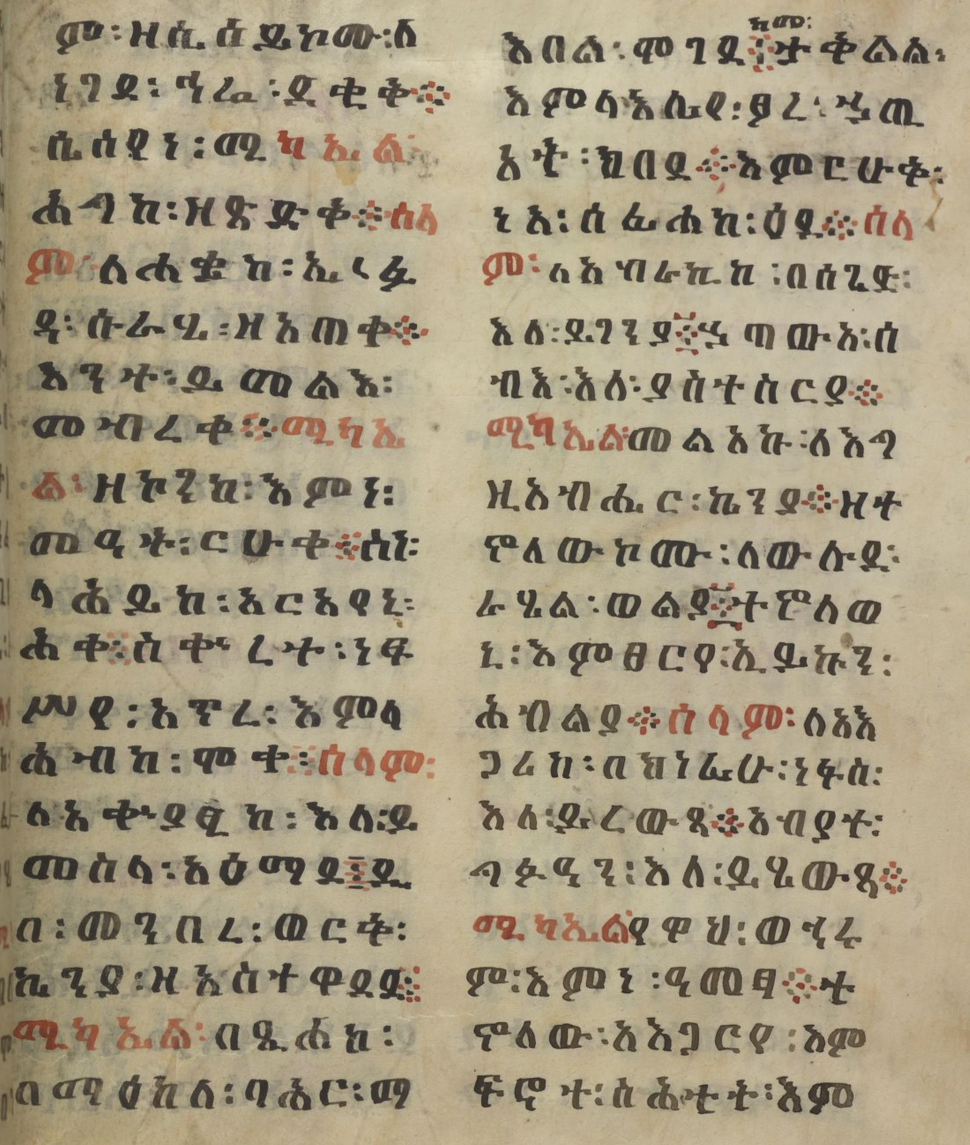 ም፡ዘሲሰይከመ፡ለ
ነገደ፡ዓሬ፡ደቂቅ፨
ሲሰየነ፡ሚካኤል
ሐዋከ፡ዘጽድቅ፨ሰላ
ም፡ለሐቌከ፡ኢ
ዳ፡ሱራኄ፡ዘአጠቀ፨
እንተ፡ይመልእ፡
መብረቀ፨ሚካኤ
ል፡ዘኮንከ፡እምነ፡
መዓት፡ርሁቀ፨ስነ፡
ላሕይከ፡አርአየኒ፡
ሐቀ፨ስቍረት፡ነፍ
ሥየ፡አጥረ፡እምላ
ሕብከ፡ሞቀ፨ሰላም፡
ለአቍያፂከ፡እለ፡ይ
መስላ፡አዕማደ፨ዲ
በ፡መንበረ፡ወርቅ፡
ኬንያ፡ዘአስተዋደደ፨
ሚካኤል፡በጼሐከ፡
በማዕከለ፡ባሕር፡ማ
ከመ፡
እበል፡ሞገደ፨ታቅልል፡
እምላእሌየ፡ፆረ፡ኃጢ
አት፡ክበደ፨እምርሁቅ፡
ነአ፡ሰፊሐከ፡ዕደ፨ሰላ
ም፡ለአብራኪከ፡በሰጊድ፡
እለ፡ይገንያ፨ኃጣውአ፡ሰ
ብእ፡እለ፡ያስተስርያ፨
ሚካኤል፡መልአኩ፡ለእግ
ዚአብሔር፡ኬንያ፨ዘተ
ሞለውኮሙ፡ለውሉደ፡
ራሄል፡ወልያ፨ተሞለወ
ኒ፡እምፀርየ፡ኢይኩን፡
ሕብልያ፨ሰላም፡ለአእ
ጋሪከ፡በክነፊሁ፡ነፋስ፡
እለ፡ይረውጻ፨አብያተ፡
ጣፉዓን፡እለ፡ይሄውጻ፨
ሚካኤልየዋህ፡ወኂሩ
ም፡እምነ፡ዓመፃ፨ተ
ሞለው፡አእጋርየ፡እም
ፍኖተ፡ስሕተት፡እም